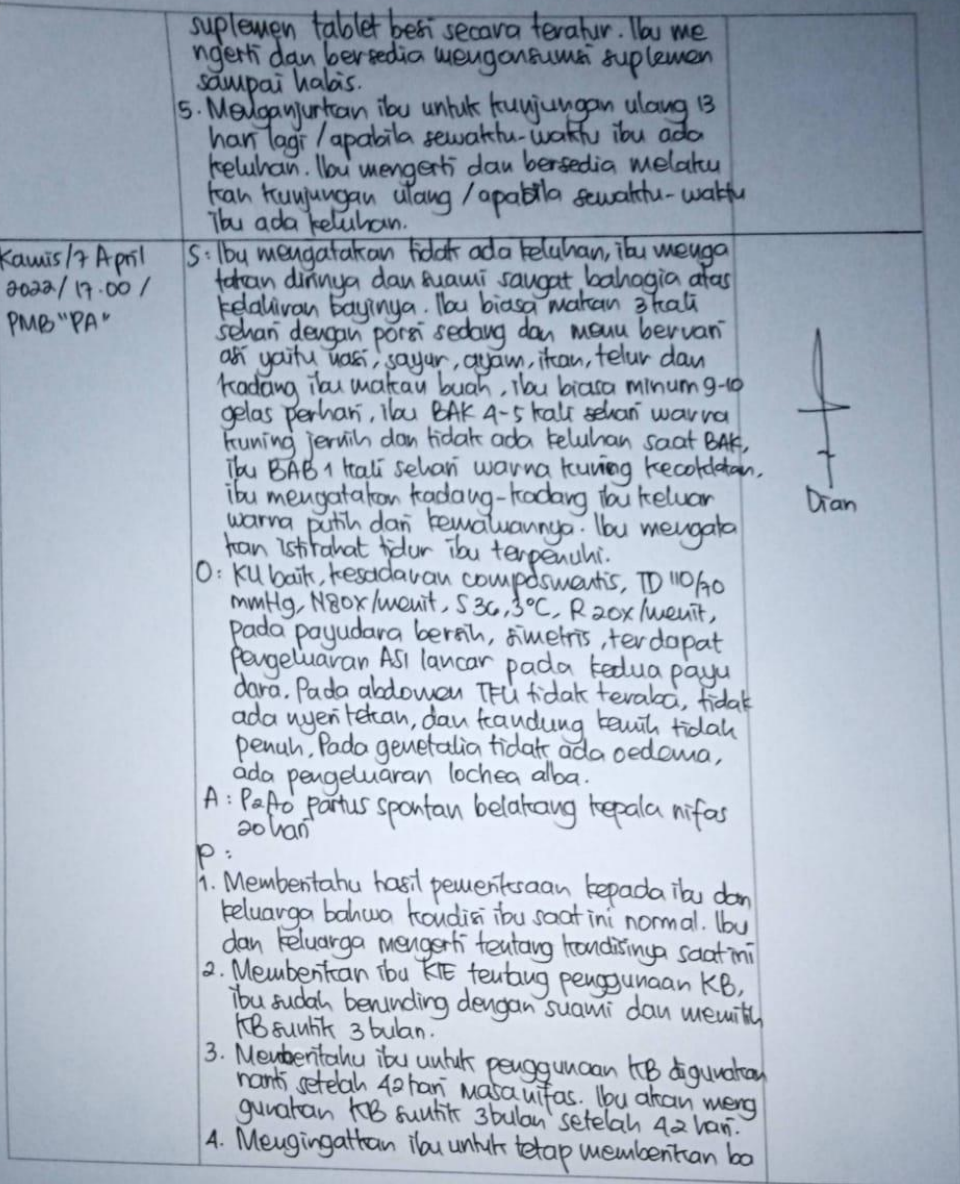 suplemen tablet besi secara teratur. Ibu me
ngerti dan bersedia mengonsumsi suplemen
sampai habis.
5. Menganjurkan ibu untuk kunjungan ulang 13
hari lagi / apabila sewaktu-waktu ibu ada
keluhan. Ibu mengerti dan bersedia melaku
kan kunjungan ulang / apabila sewaktu-waktu
ibu ada keluhan.
Kamis/7 April
2022/17.00/
PMB "PA"
S: Ibu mengatakan tidak ada keluhan, ibu menga
takan dirinya dan suami sangat bahagia atas
kelahiran bayinya. Ibu biasa makan 3 kali
sehari dengan porsi sedang dan menu bervari
asi yaitu nasi, sayur, ayam, ikan, telur dan
kadang ibu makan buah, ibu biasa minum 9-10
gelas perhari, ibu BAK 4-5 kali sehari warna
kuning jernih dan tidak ada keluhan saat BAK,
ibu BAB 1 kali sehari warna kuning kecoklatan,
ibu mengatakan kadang-kadang ibu keluar
warna putih dari kemaluannya. Ibu mengata
kan istirahat tidur ibu terpenuhi.
O: KU baik, kesadaran composmentis, TD 110/70
mmHg, N 80x/menit, S 36,3°C, R 20x/menit,
pada payudara bersih, simetris, terdapat
pengeluaran ASI lancar pada kedua payu
dara. Pada abdomen TFU tidak teraba, tidak
ada nyeri tekan, dan kandung kemih tidak
penuh. Pada genetalia tidak ada oedema,
ada pengeluaran lochea alba.
A: P2A0 partus spontan belakang kepala nifas
20 hari
P:
1. Memberitahu hasil pemeriksaan kepada ibu dan
keluarga bahwa kondisi ibu saat ini normal. Ibu
dan keluarga mengerti tentang kondisinya saat ini
2. Memberikan ibu KIE tentang penggunaan KB,
ibu sudah berunding dengan suami dan memilih
KB suntik 3 bulan.
3. Memberitahu ibu untuk penggunaan KB digunakan
nanti setelah 42 hari masa nifas. Ibu akan meng
gunakan KB suntik 3 bulan setelah 42 hari.
4. Mengingatkan ibu untuk tetap memberikan ba
Dian